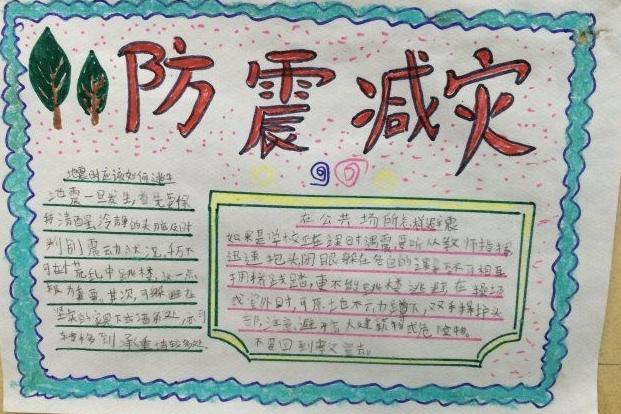 防震减灾
地震时应该如何逃生
地震一旦发生,首先要保
持清醒、冷静的头脑及时
判别震动状况,千万不
可在慌乱中跳楼,这一点
极为重要。其次,可躲避在
坚实的家具下或墙角处,亦可
转移到承重墙较多处
在公共场所怎样避震
如果是学校正在课时遇震要听从教师指挥
迅速抱头闭眼躲在各自的课桌下
拥挤践踏,更不能跳楼逃避在操场
或室外时,可原地不动蹲下,双手保护头
部,注意避开高大建筑物或危险物。
不要回到教室去。